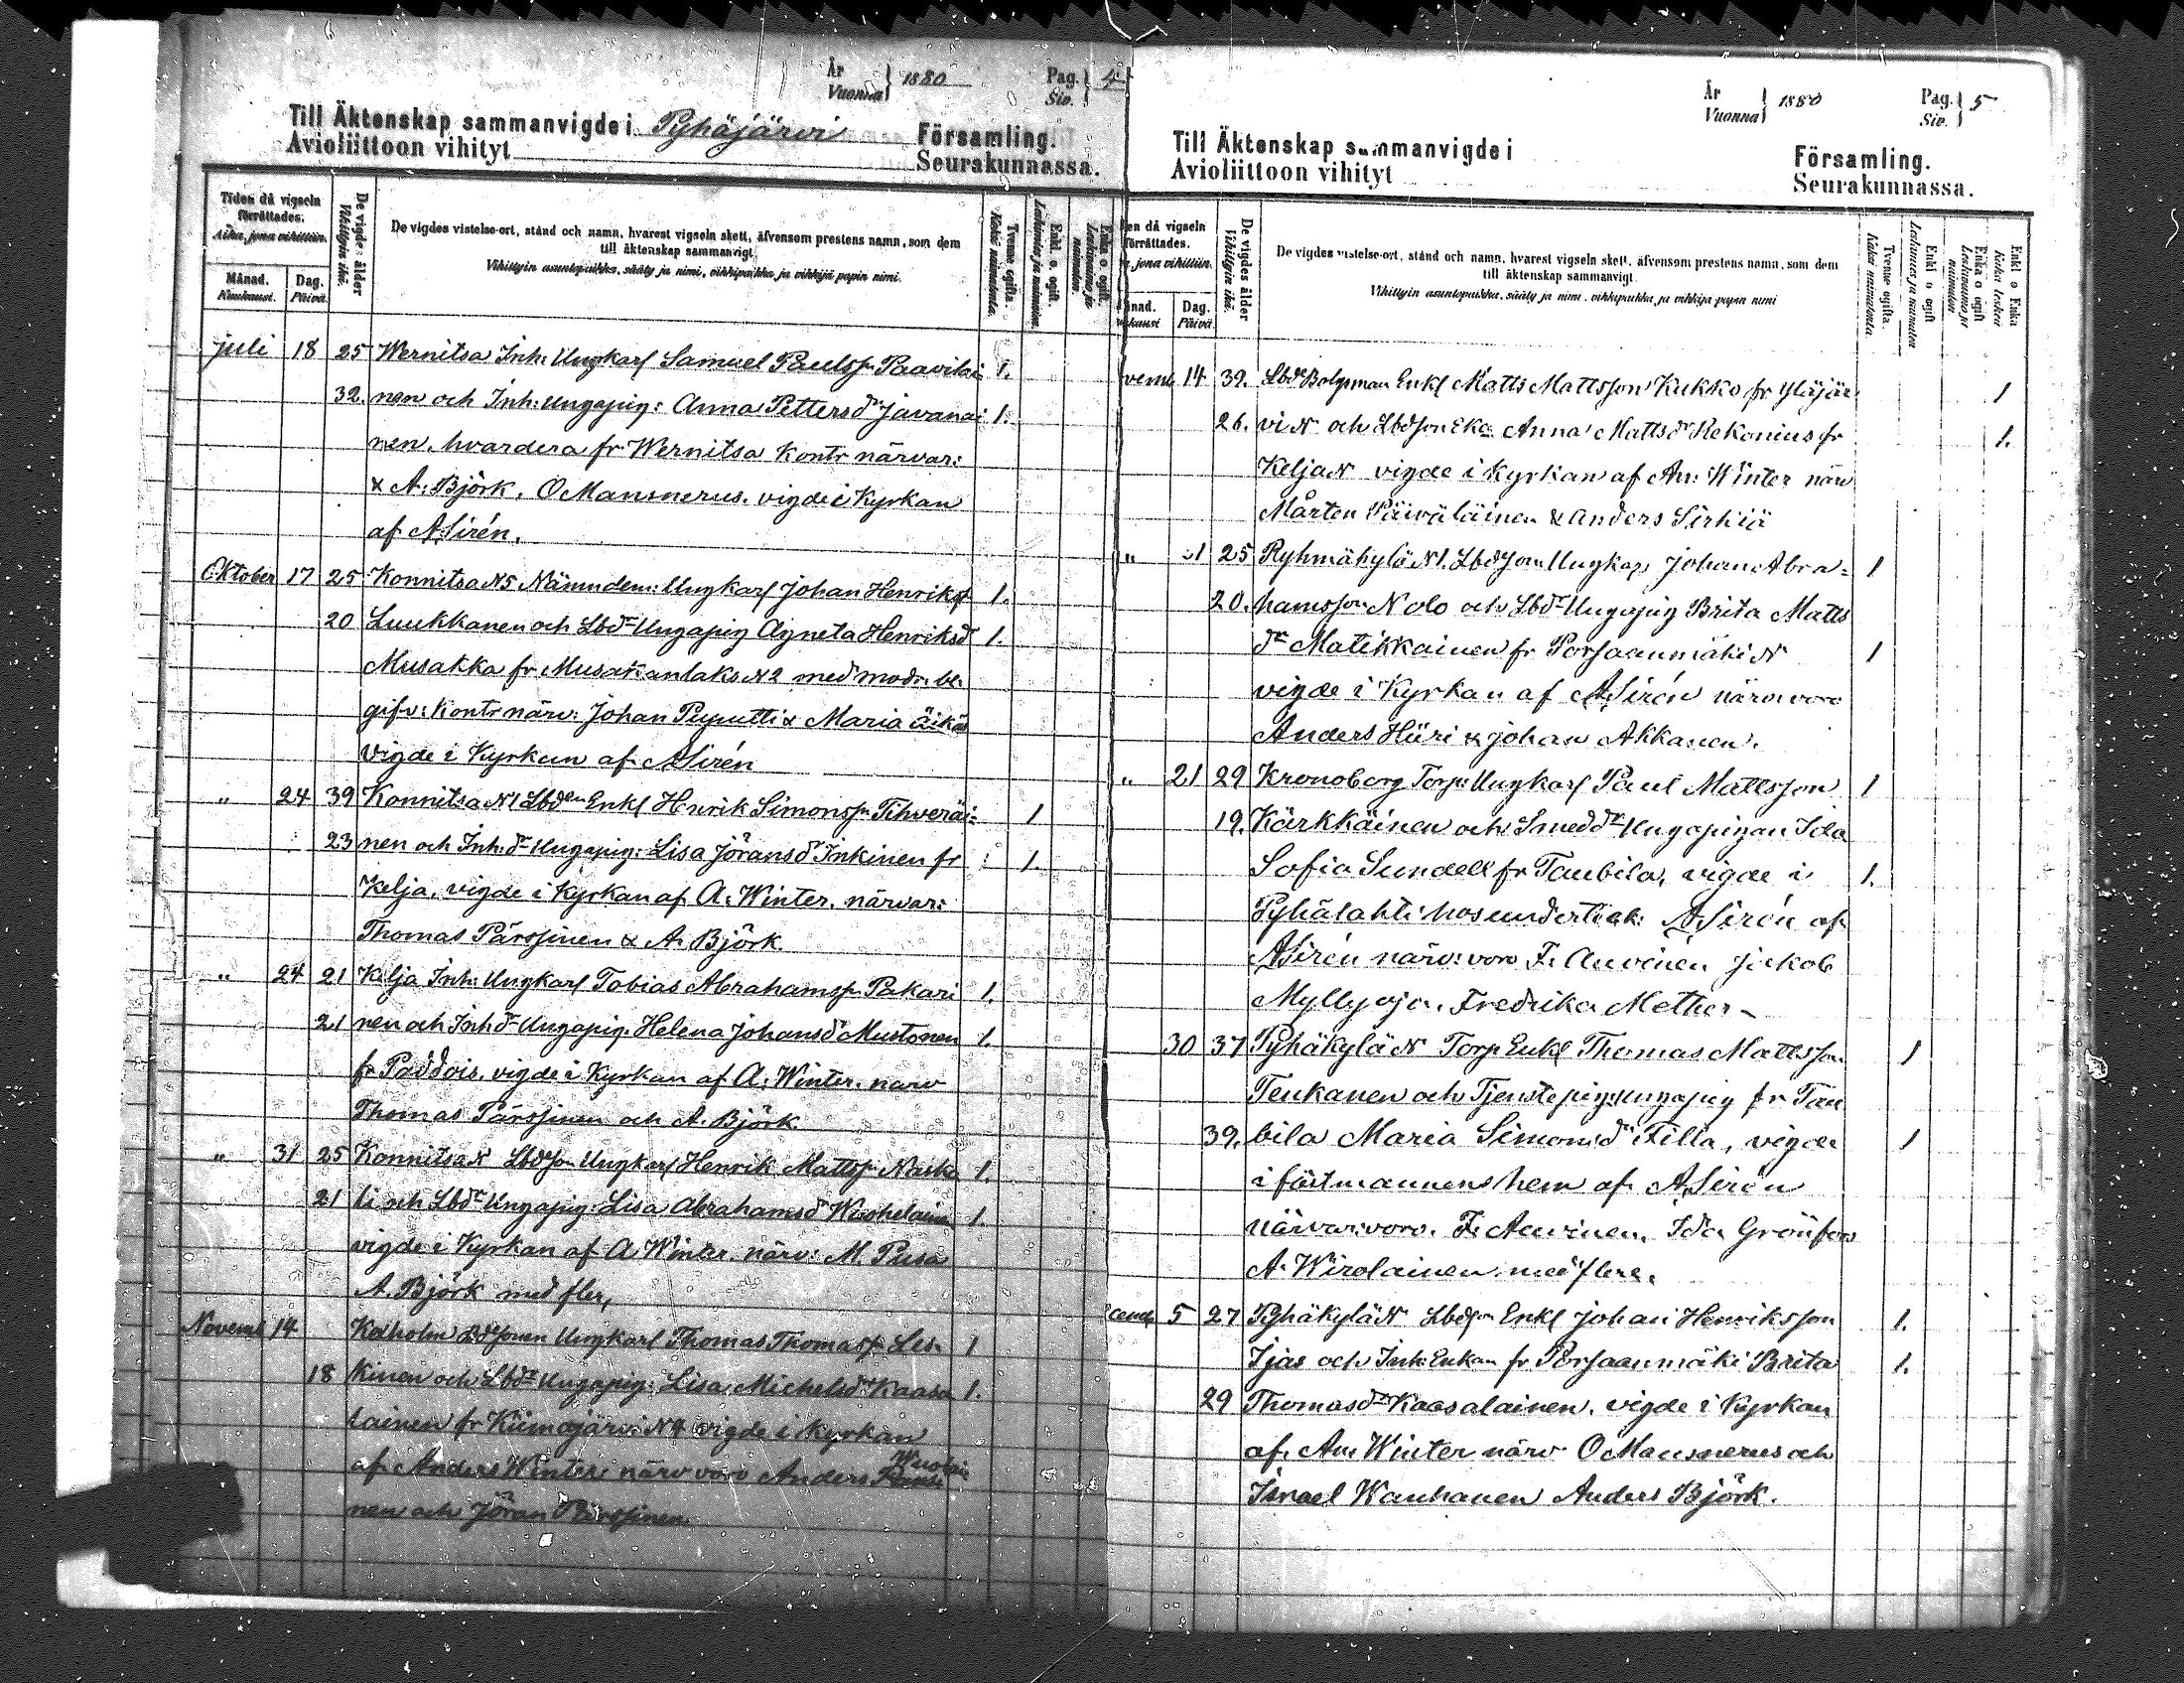 År Vuonna 1880 Pag. Siv. 4
Till Äktenskap sammanvigde i Pyhäjärvi Församling.
Avioliittoon vihityt Seurakunnassa.
Tiden då vigseln förrättades.
Aika, jona vihittiin.
Månad. Kuukausi. Dag. Päivä.
De vigdes ålder
Vihittyin ikä.
De vigdes vistelse-ort, stånd och namn, hvarest vigseln skett, äfvensom prestens namn, som dem
till äktenskap sammanvigt.
Vihittyin asuntopaikka, sääty ja nimi, vihkipaikka ja vihkijä papin nimi.
Tvenne ogifta.
Kaksi naimatonta.
Enkl. o. ogift.
Leskimies ja naimaton.
Enka o. ogift.
Leskivaimo ja naimaton.
juli 18 25 Wernitsa Inh: Ungkarl Samuel Paulss. Paavilai 1.
32. nen och Inh: ungapig: Anna Pettersdr Javanai 1.
nen, hvardera fr Wernitsa Kontr närvar:
& A. Björk. O Mansnerus. vigde i Kyrkan
af A. Sirén.
Oktober 17 25 Konnitsa N5 Nämndem: Ungkarl Johan Henrikss 1.
20 Luukkanen och Lbdr Ungapig Agneta Henriksd 1.
Musakka fr Musakanlaks N2 med modr. be
gifv: Kontr närv: Johan Pyputti & Maria Äikäs
vigde i Kyrkan af A Sirén
" 24 39 Konnitsa N1 Lbden Enkl Henrik Simonss. Tihveräi= 1
23 nen och Inh: dr Ungapig: Lisa Jöransdr Inkinen fr 1.
Kelja, vigde i Kyrkan af A. Winter. närvar:
Thomas Pärssinen & A. Björk.
" 24 21 Kelja Inh: Ungkarl Tobias Abrahamss. Pakari 1.
21 nen och Inhdr Ungapig. Helena Johansdr Mustonen 1.
fr Paddois. vigde i Kyrkan af A. Winter. narv
Thomas Pärssinen och A. Björk.
" 31 25 Konnitsa N Lbdson Ungkarl Henrik Mattss. Naska 1.
21 li och Lbdr Ungapig: Lisa Abrahamsd 1.
vigde i Kyrkan af A Winter. närv: M. Pusa
A. Björk med fler,
Novemb 14 Kexholm Ungkarl Thomas Thomass. Les- 1
18 kinen och Lbdr Ungapig: Lisa Michelsdr Kaasa 1.
lainen fr Kiimajärvi N4 vigde i Kyrkan
af Anders Winter närv voro Anders
nen och Jöran Pärssinen
År Vuonna 1880 Pag. Siv. 5
Till Äktenskap sammanvigde i Församling.
Avioliittoon vihityt Seurakunnassa.
den då vigseln förrättades.
jona vihittiin.
Dag. Päivä.
De vigdes ålder
Vihittyin ikä.
De vigdes vistelse-ort, stånd och namn, hvarest vigseln skett, äfvensom prestens namn, som dem
till äktenskap sammanvigt.
Vihittyin asuntopaikka, sääty ja nimi, vihkipaikka ja vihkijä papin nimi
Tvenne ogifta.
Kaksi naimatonta
Enkl o ogift
Leskimies ja naimaton
Enka o ogift
Leskivaimo ja naimaton
Enkl o Enka
Kaksi leskeä
vemb 14 39. Lbde Bolgsman Enkl Matts Mattsson Kukko fr Yläjär 1
26. vi N och Lbdson Eka Anna Mattsdr Rekonius fr 1.
Kelja N vigde i Kyrkan af An: Winter närv
Mårten Päiväläinen & Anders Sirkiä
" 21 25 Ryhmäkylä N1. Lbdson Ungkar, Johan Abra= 1
20. hamsson Nolo och Lbdr Ungapig Brita Matts
dr Matikkainen fr Porsaanmäki N 1
vigde i Kyrkan af A Sirén närv: voro
Anders Hiiri & Johan Akkanen.
" 21 29 Kronoborg Torp: Ungkarl Paul Mattsson 1
19. Kärkkäinen och Smeddr Ungapigan Ida
Sofia Sundell fr Taubila, vigde i 1.
Pyhälahti hos A. Sirén af
A Sirén närv: voro F. Auvinen Jakob
Myllyoja. Fredrika Mether -
30 37 Pyhäkylä N Torp Enkl Thomas Mattsson 1
Teukanen och Tjenstepig: ungapig fr Tau
39. bila Maria Simonsdr Filla, vigde 1
i fästmannens hem af A. Sirén
närvar: voro. F. Auvinen, Ida Grönfors
A. Wirolainen med flere.
cemb 5 27 Pyhäkylä N Lbdson Enkl Johan Henriksson 1.
Ijäs och Inh: Enkan fr Porsaanmäki Brita 1.
29 Thomasdr Kaasalainen. vigde i Kyrkan
af. An: Winter närv O Mansnerus och
Israel Wanhanen Anders Björk.